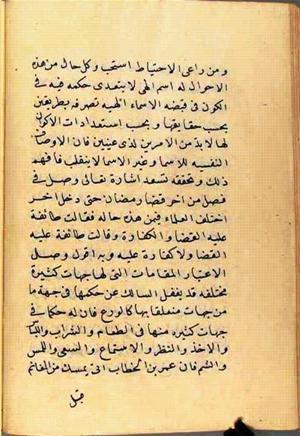 ومن راعى الاحتياط استحب وكل حال من هذه
الاحوال له اسم الهى لا يتعدى حكمه فيه فى
الكون فى قبضه الاسماء الهيه تصرفه بطريقين
بحسب حقايقها وبحسب استعدادات الاكوان
لها لا بد من الامرين لذى عينين فان الاوصاف
النفسيه للاسما وغير الاسما لا ينقلب فافهم
ذلك وتحققه تسعد اشارة تعالى وصل فى
فصل من اخر قضا رمضان حتى دخل اخر
اختلف العلماء فيمن هذه حاله فقالت طائفة
عليه القضا والكفارة وقالت طائفة عليه
القضا ولا كفارة عليه وبه اقول وصل
الاعتبار المقامات التى لها جهات كثيرة
مختلفه قد يغفل السالك عن حكمها فى جهة ما
من جهات متعلقاتها كالورع فان له حكما فى
جهات كثيره منها فى الطعام والشراب واللباس
والاخذ والنظر والاستماع والسعى واللمس
والشم فان عمر بن الخطاب اتى بمسك من المغانم
قبل